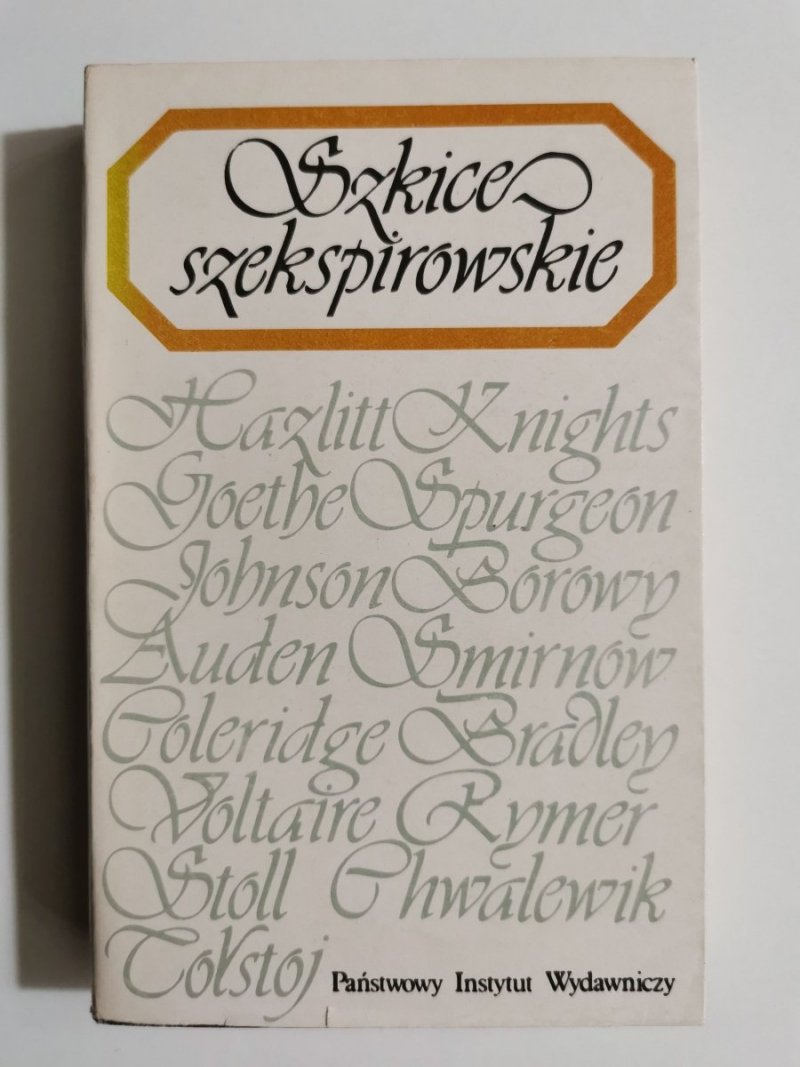 Szkice
szekspirowskie
Hazlitt Knights
Goethe Spurgeon
Johnson Borowy
Auden Smirnow
Coleridge Bradley
Voltaire Rymer
Stoll Chwalewik
Tołstoj Państwowy Instytut Wydawniczy